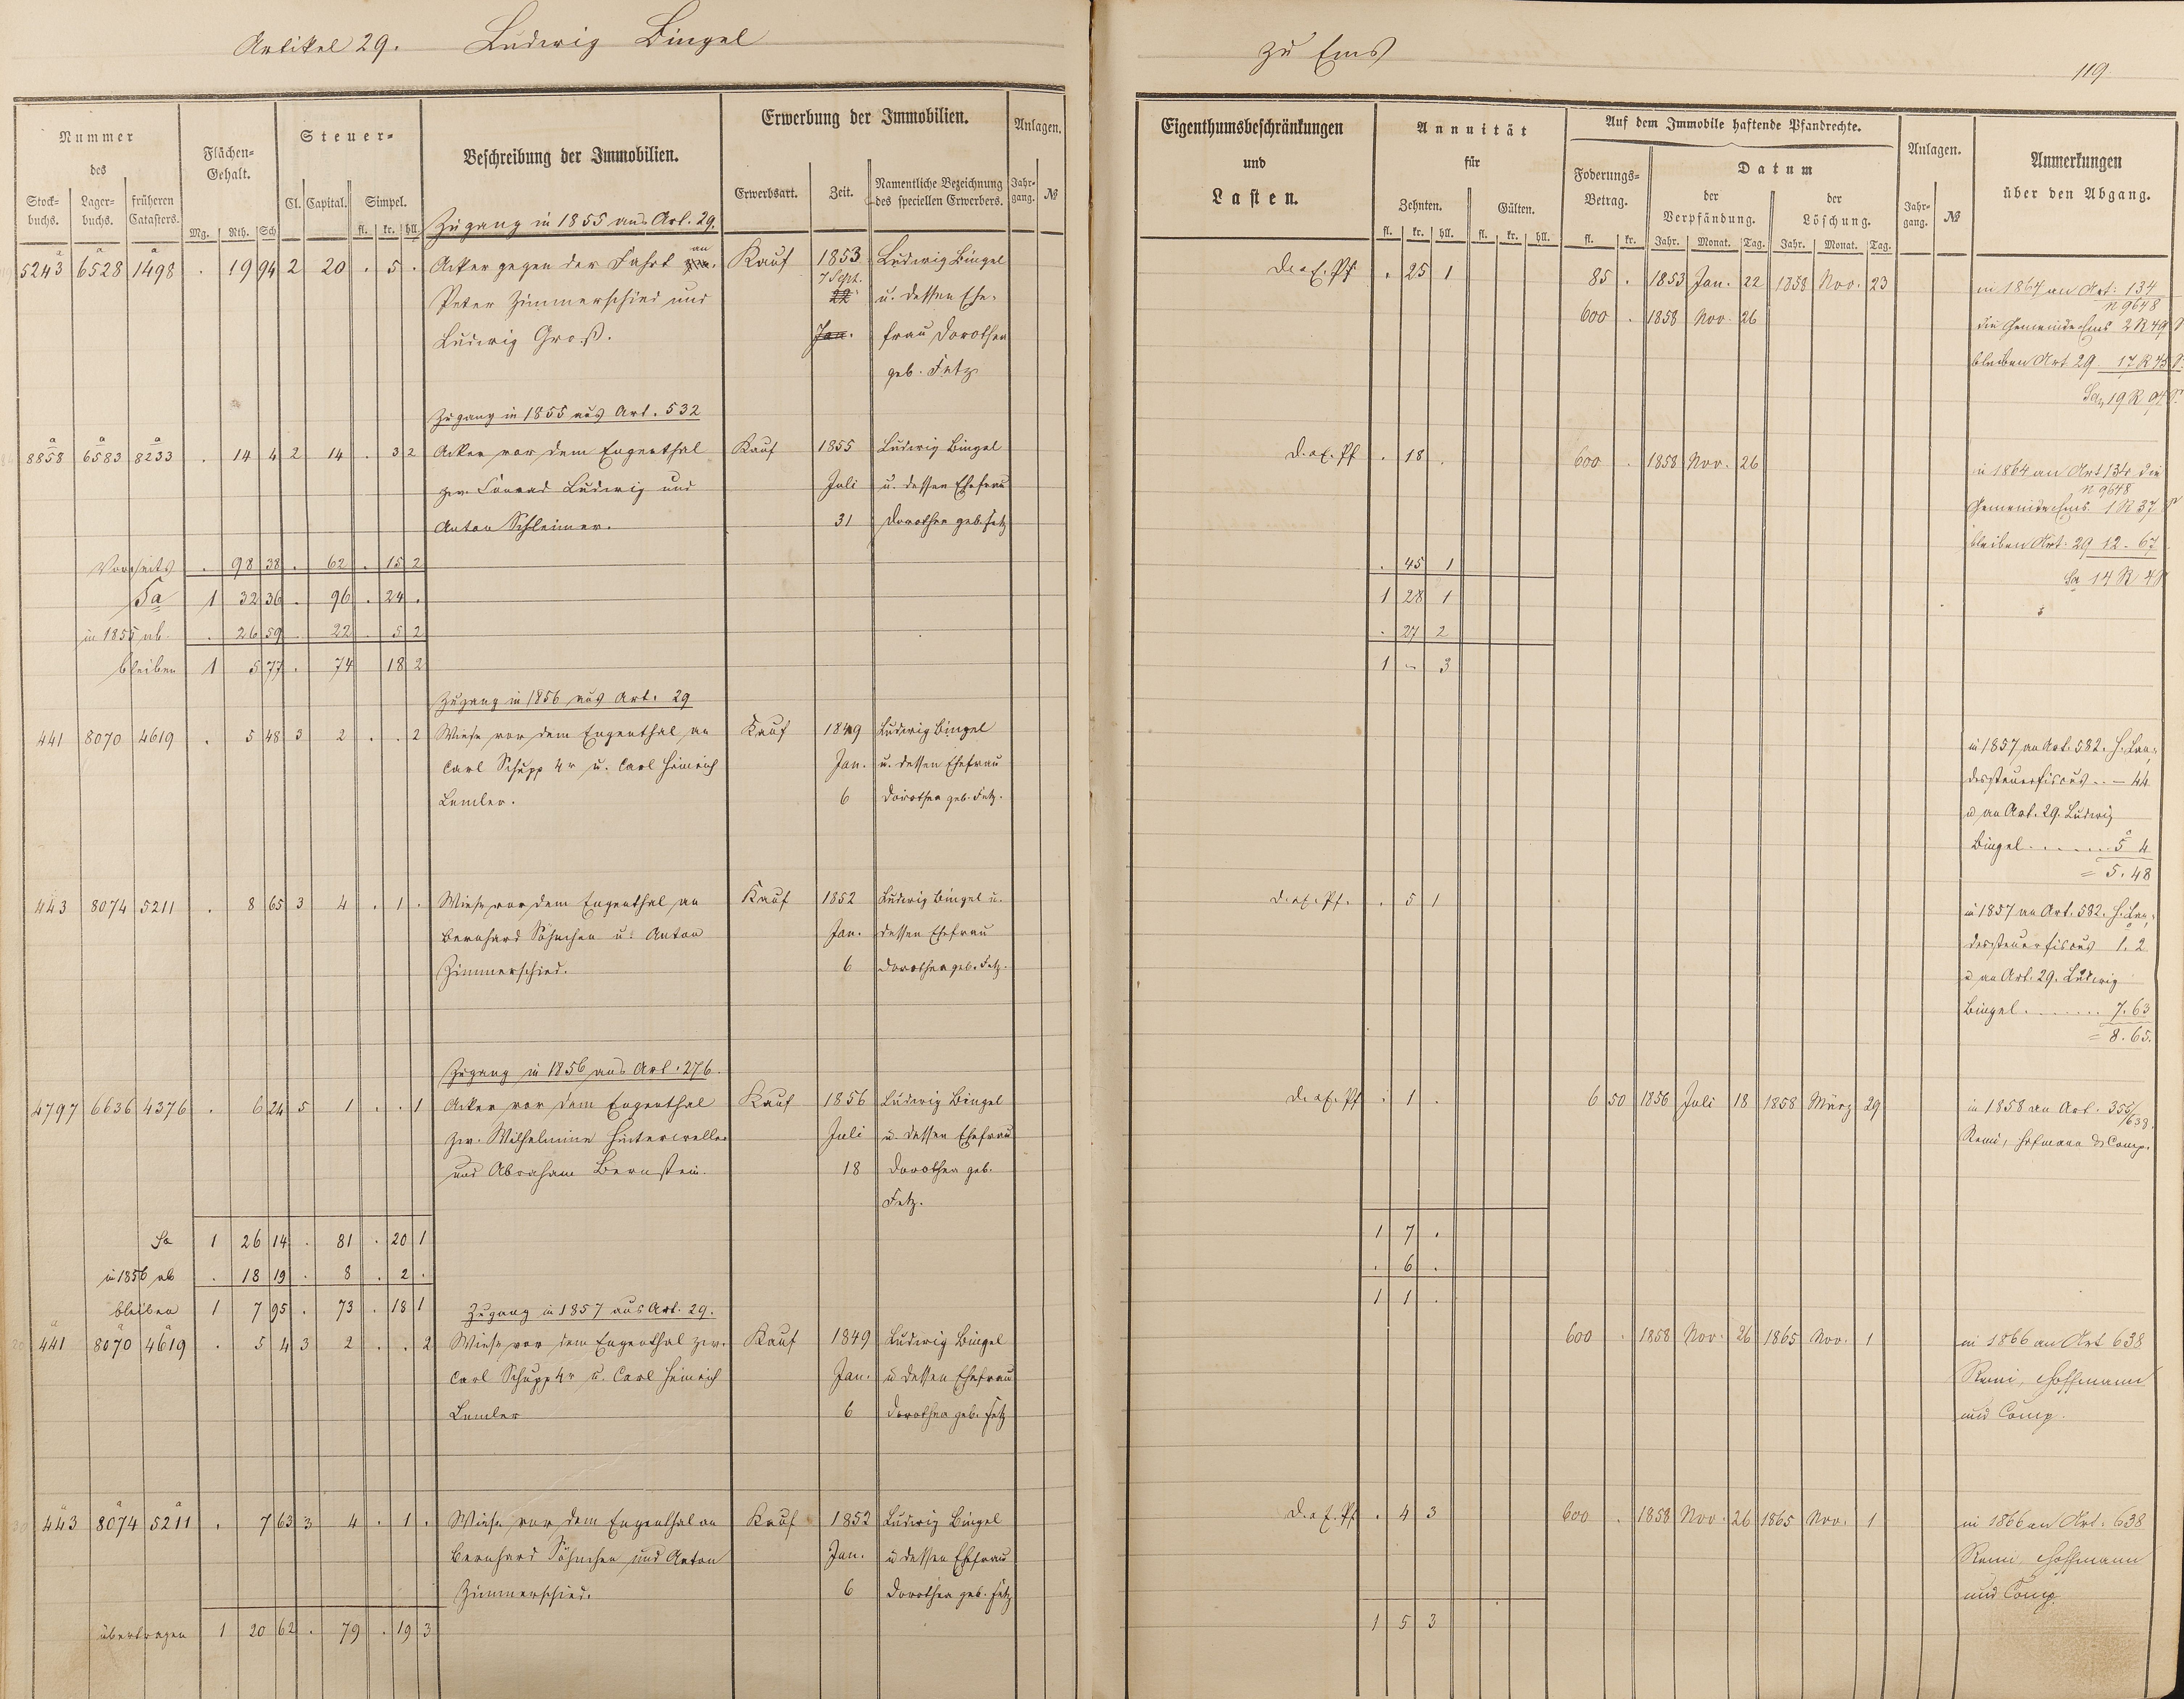 Artikel 29. Ludwig Bingel
zu Ems
119
Nummer des
Stock-buchs. Lager-buchs. früheren Catasters.
Flächen-Gehalt.
Mg. Rth. Sch
Steuer-
Cl. Capital. Simpel.
fl. kr. hll.
Beschreibung der Immobilien.
Erwerbung der Immobilien.
Erwerbsart. Zeit. Namentliche Bezeichnung des speciellen Erwerbers.
Anlagen.
Jahr-gang. №
Zugang in 1855 aus Art. 29.
a a
5243 6528 1498 . 19 94 2 20 . 5 . Acker gegen der Fahrt an Kauf 1853 Ludwig Bingel
Peter Zimmerschied und 7 Sept. 22 u. dessen Ehe-
Ludwig Groß. Jan. frau Dorothea
geb. Fetz
Zugang in 1855 aus Art. 532
a a a
8858 6583 8233 . 14 4 2 14 . 3 2 Acker vor dem Engenthal Kauf 1855 Ludwig Bingel
zw. Conrad Ludwig und Juli u. dessen Ehefrau
Anton Schleimer. 31 Dorothea geb. Fetz
Vorseits . 98 38 . 62 . 15 2
Sa 1 32 36 . 96 . 24 .
in 1855 ab . 26 59 . 22 . 5 2
bleiben 1 5 77 . 74 18 2
Zugang in 1856 aus Art. 29
441 8070 4619 . 5 48 3 2 . . 2 Wiese vor dem Engenthal an Kauf 1849 Ludwig Bingel
Carl Schupp 4r u. Carl Heinrich Jan. u. dessen Ehefrau
Lemler. 6 Dorothea geb. Fetz.
443 8074 5211 . 8 65 3 4 . 1 . Wiese vor dem Engenthal an Kauf 1852 Ludwig Bingel u.
Bernhard Söhnchen u. Anton Jan. dessen Ehefrau
Zimmerschied. 6 Dorothea geb. Fetz.
Zugang in 1856 aus Art. 276.
4797 6636 4376 . 6 24 5 1 . . 1 Acker vor dem Engenthal Kauf 1856 Ludwig Bingel
zw. Wilhelmine Hinterweller Juli u. dessen Ehefrau
und Abraham Bernstein. 18 Dorothea geb.
Fetz.
Sa 1 26 14 . 81 . 20 1
in 1856 ab . 18 19 . 8 . 2 .
bleiben 1 7 95 . 73 . 18 1
Zugang in 1857 aus Art. 29.
a a a
441 8070 4619 . 5 4 3 2 . . 2 Wiese vor dem Engenthal zw. Kauf 1849 Ludwig Bingel
Carl Schupp 4r u. Carl Heinrich Jan. u dessen Ehefrau
Lemler 6 Dorothea geb. Fetz
a a a
443 8074 5211 . 7 63 3 4 . 1 . Wiese vor dem Engenthal an Kauf 1852 Ludwig Bingel
Bernhard Söhnchen und Anton Jan. u dessen Ehefrau
Zimmerschied. 6 Dorothea geb. Fetz
übertragen 1 20 62 . 79 . 19 3
Eigenthumsbeschränkungen
und
Lasten.
Annuität
für
Zehnten. Gülten.
fl. kr. hll. fl. kr. hll.
Auf dem Immobile haftende Pfandrechte.
Foderungs-Betrag.
fl. kr.
Datum
der Verpfändung. der Löschung.
Jahr. Monat. Tag. Jahr. Monat. Tag.
Anlagen.
Jahr-gang. №
Anmerkungen
über den Abgang.
. 25 1 85 . 1853 Jan. 22 1858 Nov. 23 in 1864 an Art: 134
n 9648
600 . 1858 Nov. 26 die Gemeinde Ems 2 R 49
bleiben Art 29 17 R 45
Sa 19 R 94
. 18 . 600 . 1858 Nov. 26 in 1864 an Art 134 die
n 9648
Gemeinde Ems 1 R 37
bleiben Art: 29 12 - 67
Sa 14 R 4
. 45 1
1 28 1
. 27 2
1 - 3
in 1857 an Art. 582. H. Lan-
dessteuerfiscus .. - 44
u an Art. 29. Ludwig
Bingel . . . . . 5 4
= 5. 48
. 5 1 in 1857 an Art. 582. H. Lan-
dessteuerfiscus 1. 2
u an Art. 29. Ludwig
Bingel . . . . . 7. 63
= 8. 65.
. 1 . 6 50 1856 Juli 18 1858 März 29 in 1858 an Art. 355/638.
Remi, Hofmann & Comp.
1 7 .
. 6 .
1 1 .
600 . 1858 Nov. 26 1865 Nov. 1 in 1866 an Art 638
Remi, Hoffmann
und Comp.
. 4 3 600 . 1858 Nov. 26 1865 Nov. 1 in 1866 an Art: 638
Remi Hoffmann
und Comp.
1 5 3